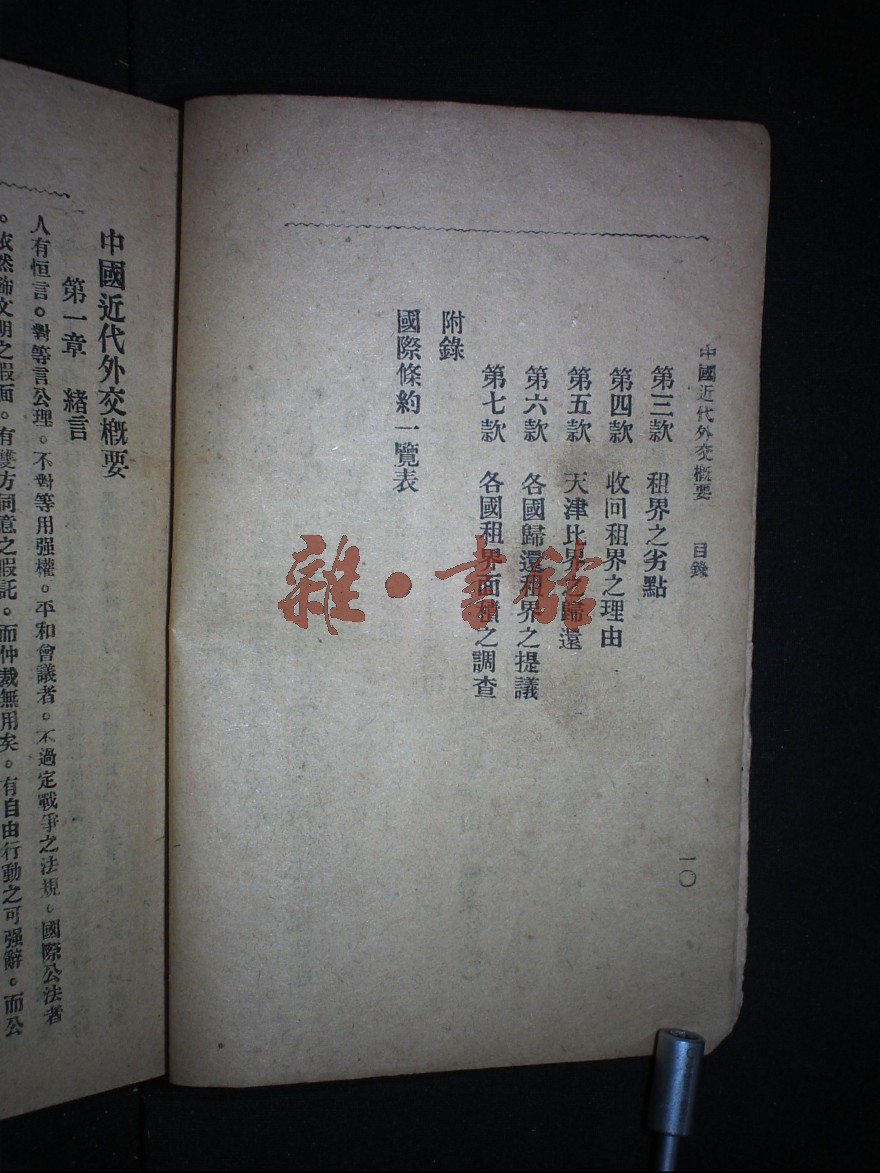 中國近代外交概要　目錄
一〇
第三款　租界之劣點
第四款　收回租界之理由
第五款　天津比界之歸還
第六款　各國歸還租界之提議
第七款　各國租界面積之調查
附錄
國際條約一覽表
雜·書館
中國近代外交概要
第一章　緒言
人有恒言。對等言公理。不對等用强權。平和會議者。不過定戰爭之法規。國際公法者
。依然飾文明之假面。有雙方同意之假託。而仲裁無用矣。有自由行動之可强辭。而公